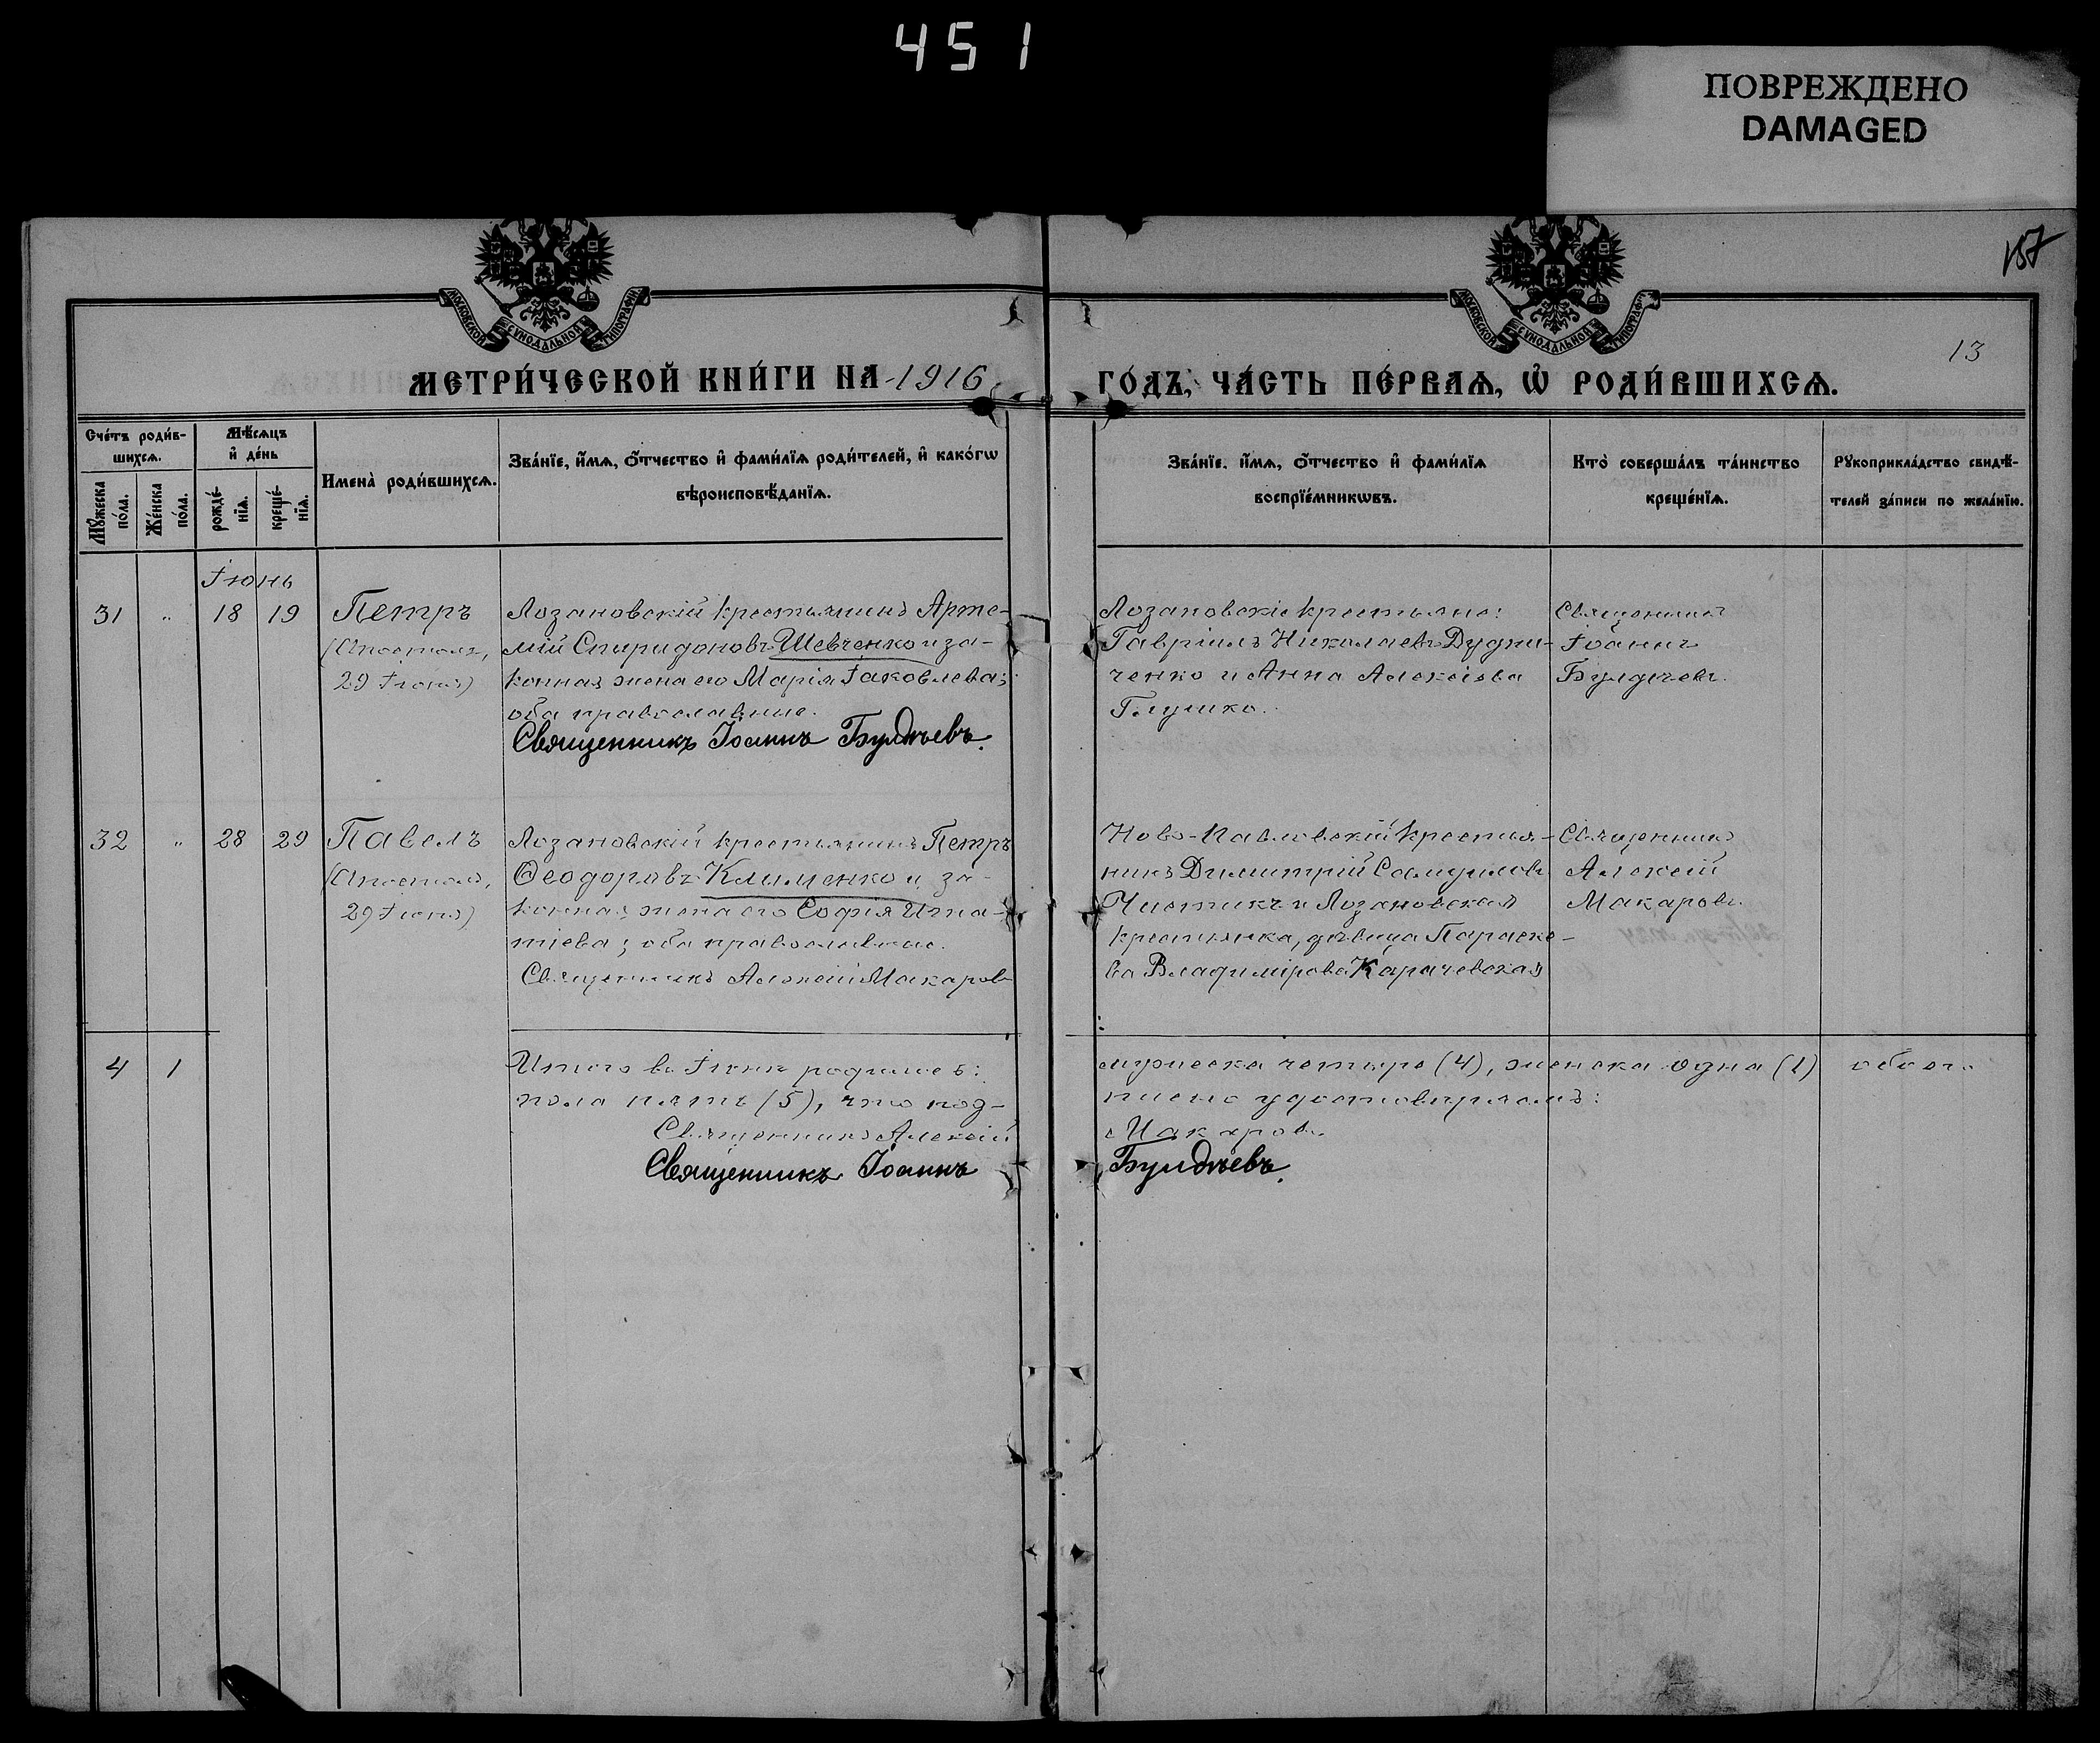 451
ПОВРЕЖДЕНО
DAMAGED
157
13
МОСКОВСКОЙ СѴНОДАЛЬНОЙ ТИПОГРАФІИ
МОСКОВСКОЙ СѴНОДАЛЬНОЙ ТИПОГРАФІИ
МЕТРИ́ЧЕСКОЙ КНИ́ГИ НА 1916
ГО́ДЪ, ЧА́СТЬ ПЕ́РВАѦ, Ѡ҆ РОДИ́ВШИХСѦ.
Сче́тъ роди́в-
шихсѧ.
Мꙋ́жеска по́ла.
Же́нска по́ла.
Мѣ́сѧцъ
и҆ де́нь
рожде́-
нїѧ.
креще́-
нїѧ.
Имена̀ роди́вшихсѧ.
Зва́нїе, и҆́мѧ, ѻ҆́тчество и҆ фами́лїѧ роди́телей, и҆ како́гѡ
вѣроисповѣ́данїѧ.
Зва́нїе, и҆́мѧ, ѻ҆́тчество и҆ фами́лїѧ
воспрїе́мникѡвъ.
Кто̀ соверша́лъ та́инство
креще́нїѧ.
Рꙋкоприкла́дство свидѣ́-
телей за́писи по жела́нїю.
Іюнь
31 " 18 19
Петръ
(Апостолъ,
29 Іюня)
Лозановскій крестьянинъ Арте-
мій Спиридоновъ Шевченко и за-
конная жена его Марія Іаковлева;
оба православные.
Священникъ Іоаннъ Булдѣевъ.
Лозановскіе крестьяне:
Гавріилъ Николаевъ Дудни-
ченко и Анна Алексіева
Глушко.
Священникъ
Іоаннъ
Булдѣевъ.
32 " 28 29
Павелъ
(Апостолъ,
29 Іюня)
Лозановскій крестьянинъ Петръ
Ѳеодоровъ Клименко и за-
конная жена его Софія Игна-
тіева; оба православные.
Священникъ Алексій Макаровъ
Ново-Павловскій крестья-
нинъ Димитрій Самуиловъ
Чистикъ и Лозановская
крестьянка, дѣвица Параске-
ва Владимірова Карачевская
Священникъ
Алексій
Макаровъ.
4 1
Итого въ Іюнѣ родилось: мужеска четыре (4), женска одна (1) обоего
пола пять (5), что под-
писью удостовѣряемъ:
Священникъ Алексій Макаровъ.
Священникъ Іоаннъ Булдѣевъ.